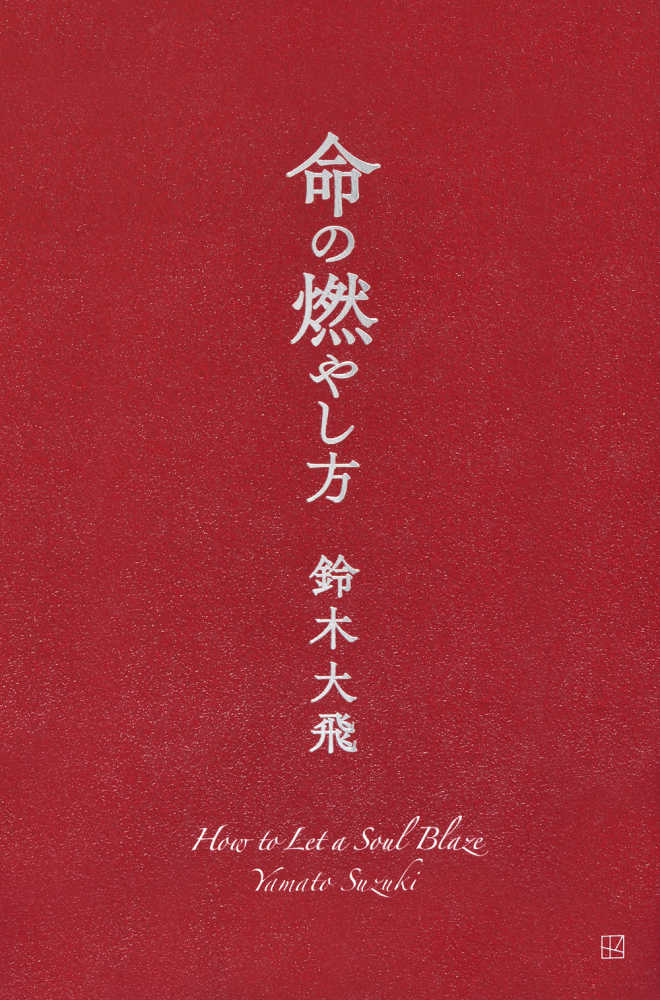 命の燃やし方
鈴木大飛
How to Let a Soul Blaze
Yamato Suzuki